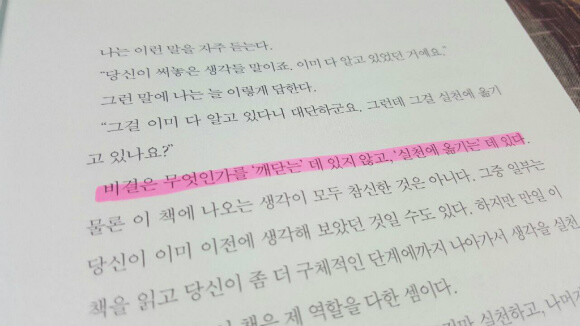 나는 이런 말을 자주 듣는다.
“당신이 써놓은 생각들 말이죠. 이미 다 알고 있었던 거예요.”
그런 말에 나는 늘 이렇게 답한다.
“그걸 이미 다 알고 있다니 대단하군요. 그런데 그걸 실천에 옮기
고 있나요?”
비결은 무엇인가를 ‘깨닫는’ 데 있지 않고, ‘실천에 옮기는’ 데 있다.
물론 이 책에 나오는 생각이 모두 참신한 것은 아니다. 그중 일부는
당신이 이미 이전에 생각해 보았던 것일 수도 있다. 하지만 만일 이
책을 읽고 당신이 좀 더 구체적인 단계에까지 나아가서 생각을 실천
책은 제 역할을 다한 셈이다.
실천하고, 나머